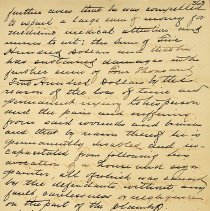 further avers that he was compelled
to expend a large sum of money for
medicine, medical attention and
nurses to wit: the sum of five
Hundred dollars and that he
has sustained damages in the
further sum of Ten Thousand
Five Hundred Dollars by the
reason of the loss of time and
permanent injury to his person
and the pain and suffering
from said wounds and bruises
and that by reason thereof he is
permanently disabled and
prevented from following his
avocation of House and sign
painter, all of which was caused
by the defendants without any
fault carelessness or negligence
on the part of the plaintiff